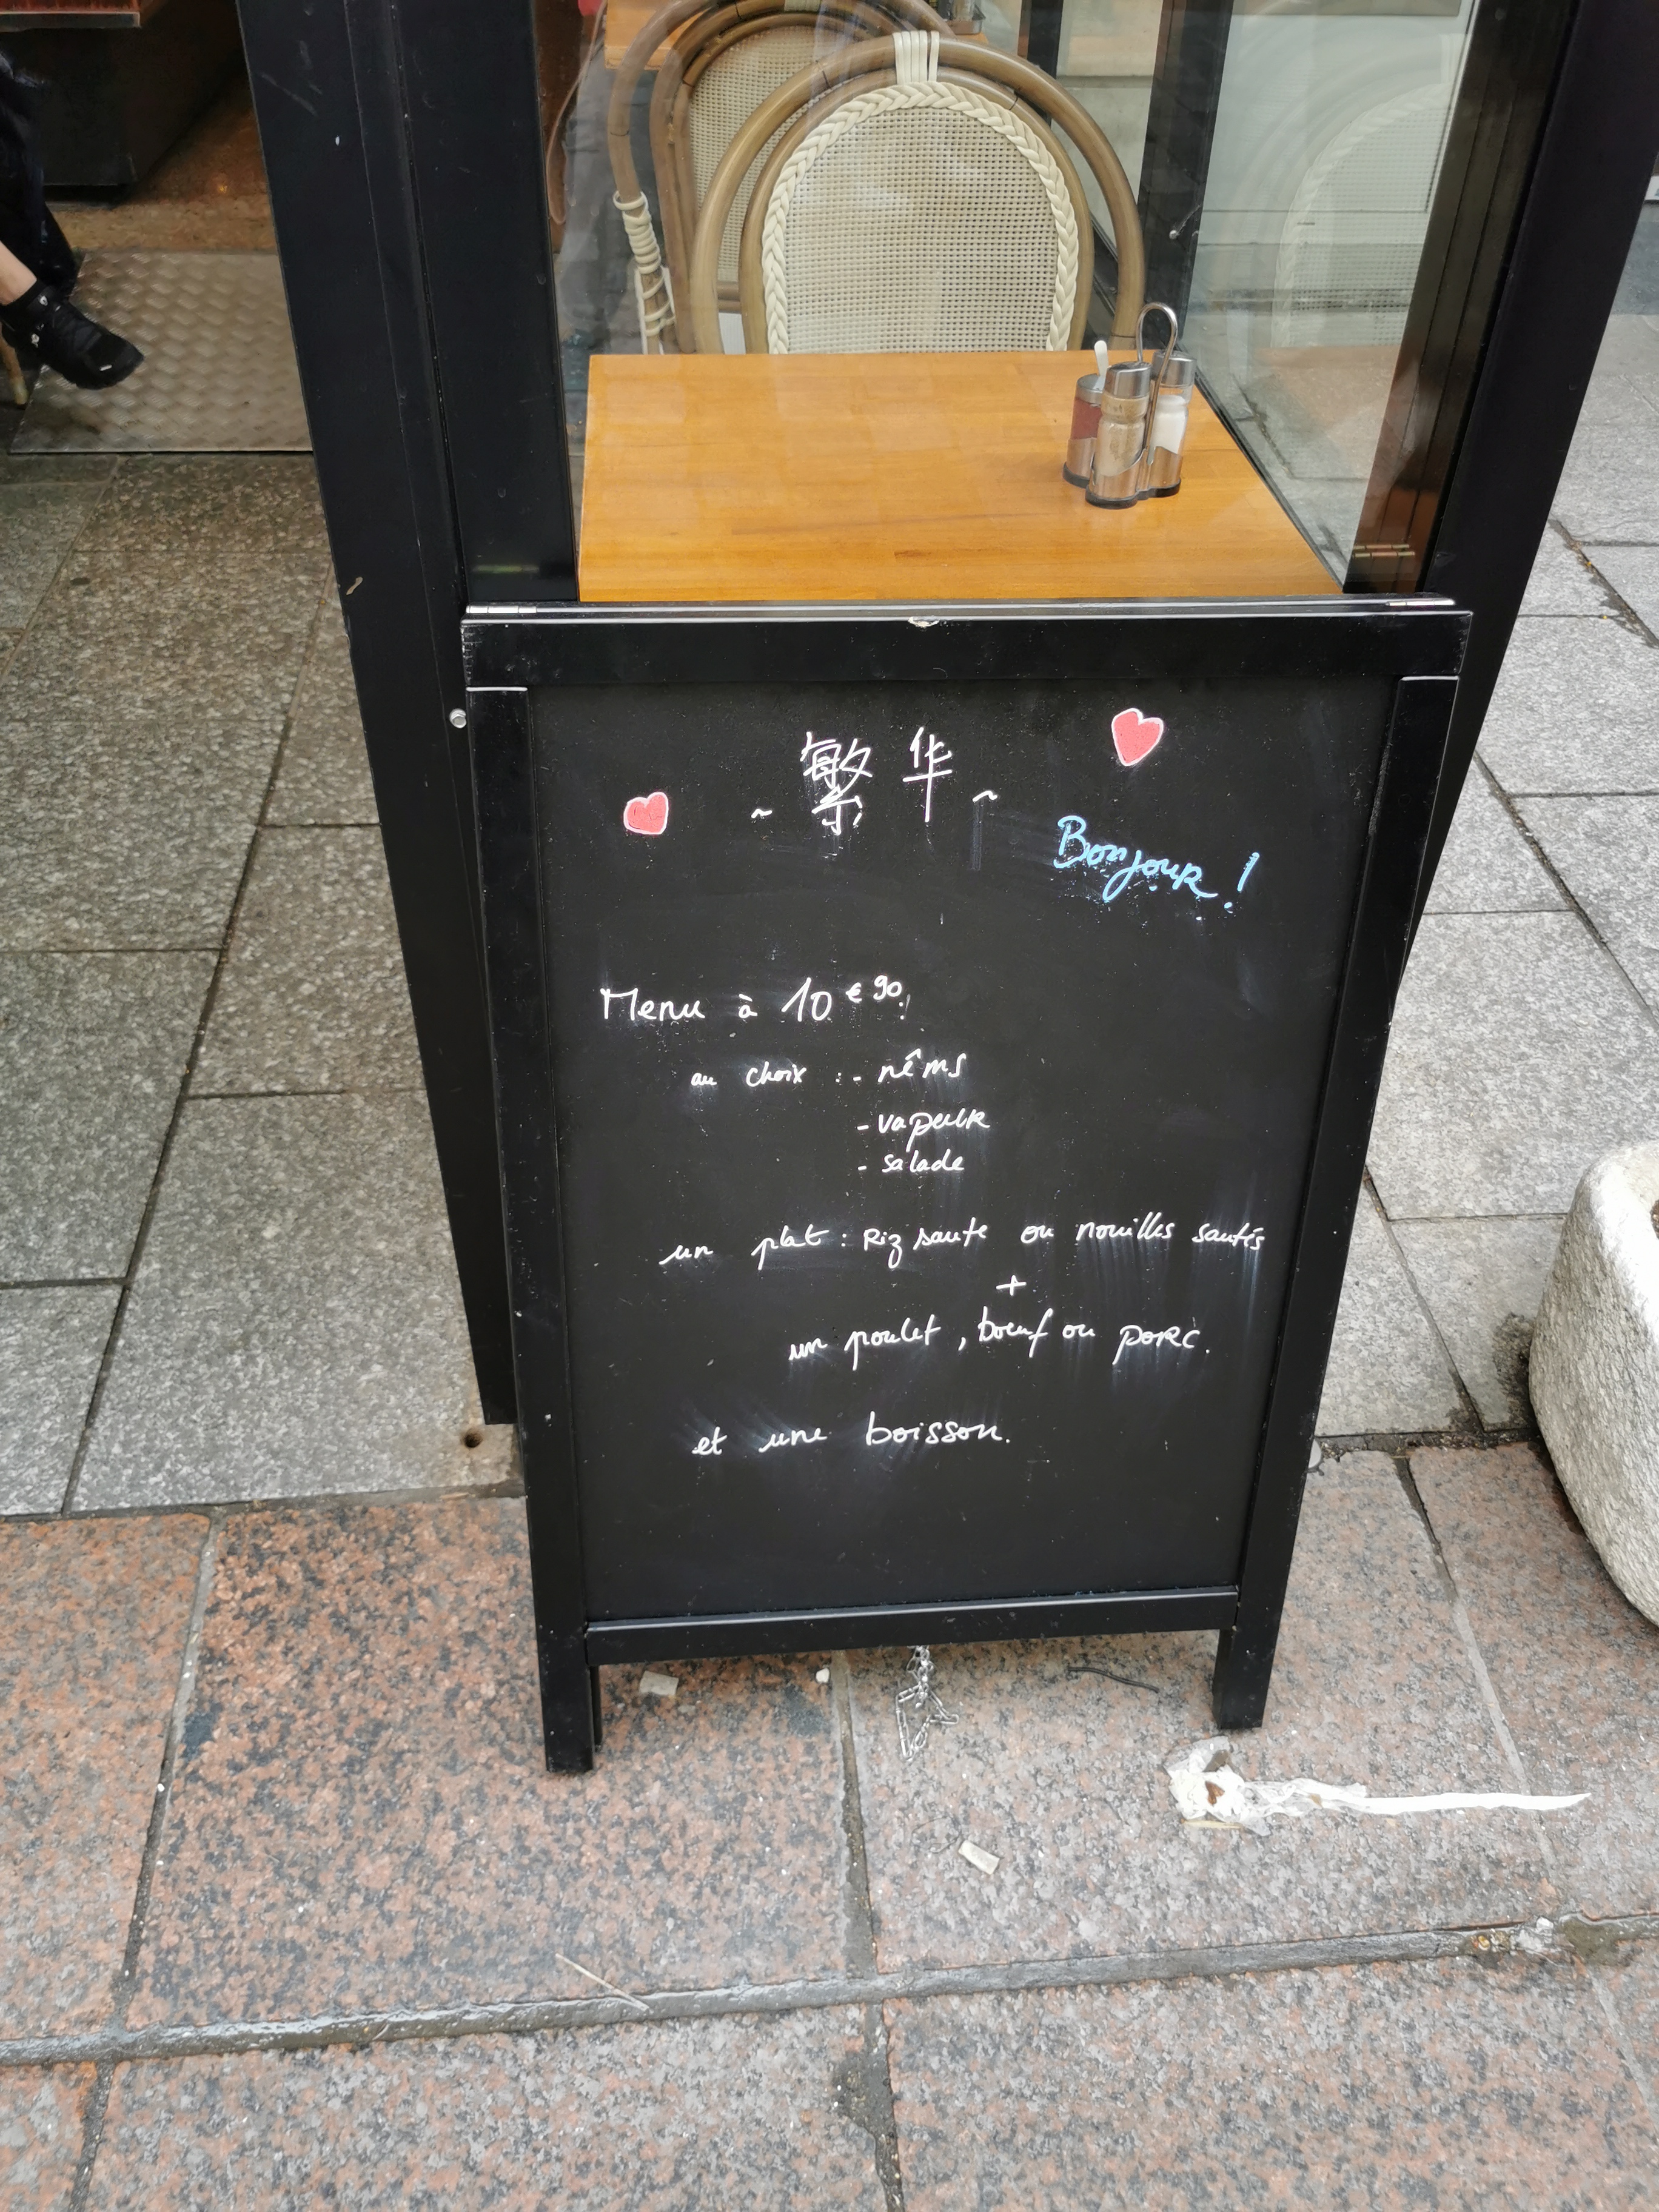 ~ 繁华 ~
Bonjour !
Menu à 10 € 90 !
au choix : - nêms
- vapeur
- salade
un plat : Riz saute ou nouilles sautés
+
un poulet , bœuf ou porc.
et une boisson.